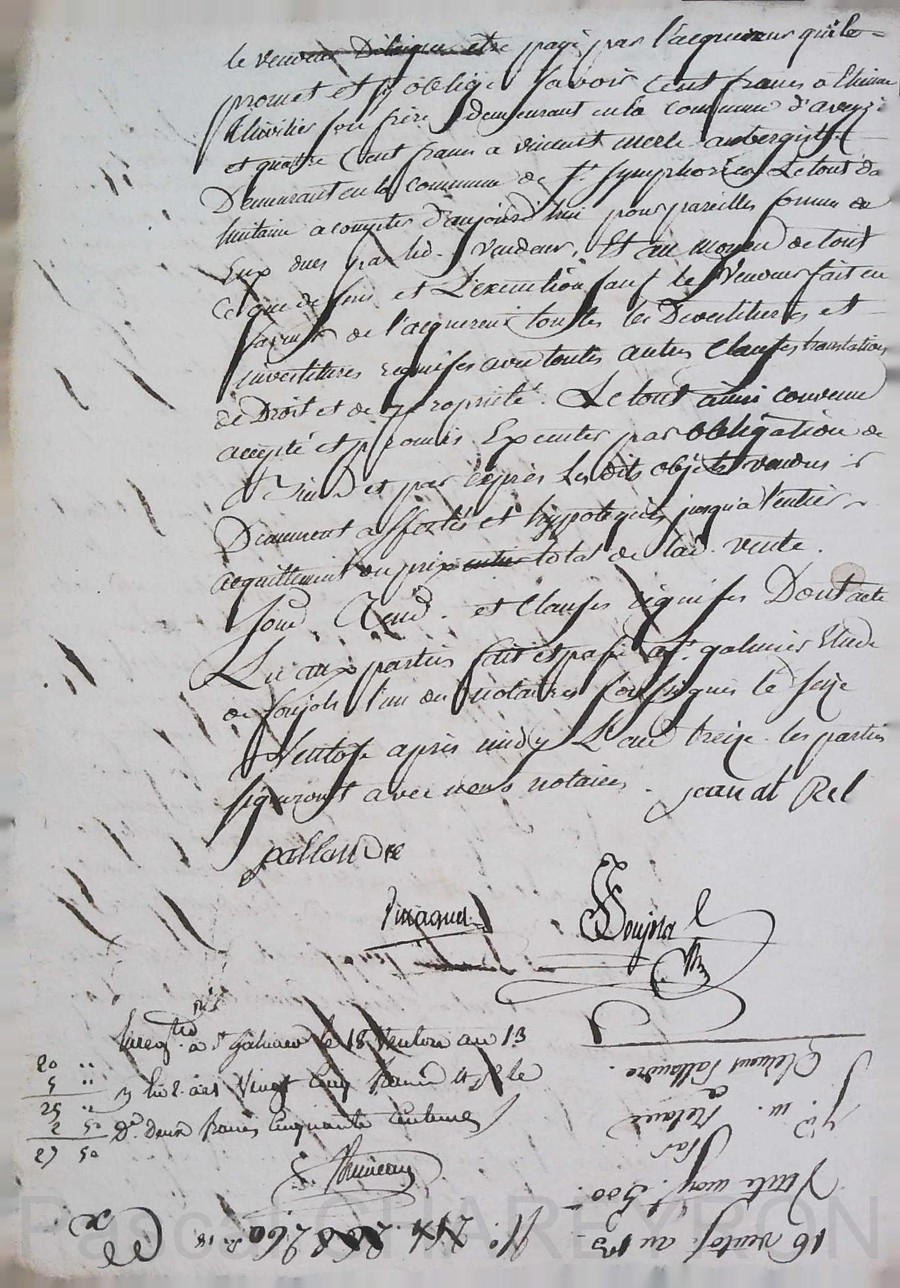 le vendeur Delégue etre payé par l'acquereur qui le
promet et s'y oblige Savoir Cent francs a Etienne
son frère Demeurant en la commune d'aveizi
et quatre Cent francs a vincent merle aubergiste
Demeurant en la commune de St. Symphorien Le tout da
huitaine a compter D'aujourd'hui pour pareilles somme a
Eux dues par led. vendeur, Et au moyen de tout
Ce que dessus et L'execution sauf le Vendeur fait en
faveur de l'acquereur toutes les Devestitures et
investitures requises avec toutes autres Clauses translatives
de Droit et de propriété. Le tout ainsi convenu
accepté et promis Executer par obligation de
Biens et par exprès Lesdits objets vendus
Demeurent affectés et hypotequés jusqu'a l'entier
acquittement du prix entier total de lad. vente.
Soum. Rend. et Clauses requises Dont acte
Lu aux parties fait et passé a St. galmier Etude
de soujols l'un des notaires soussignés le seize
Ventose après midy L'an treize les parties
signeront avec nous notaires. jean at Rel
pallandre
Soujols
Enreg. a St Galmier le 18 Ventose an 13
20 "
5 "
25 "
2 50
27 50
Vingt Cinq francs
Dme Deux francs Cinquante Centimes
16 ventose an 13
Vente moy. 500
Par
Notaire
a
Clément Pallandre.
Pascal CHAREYRON